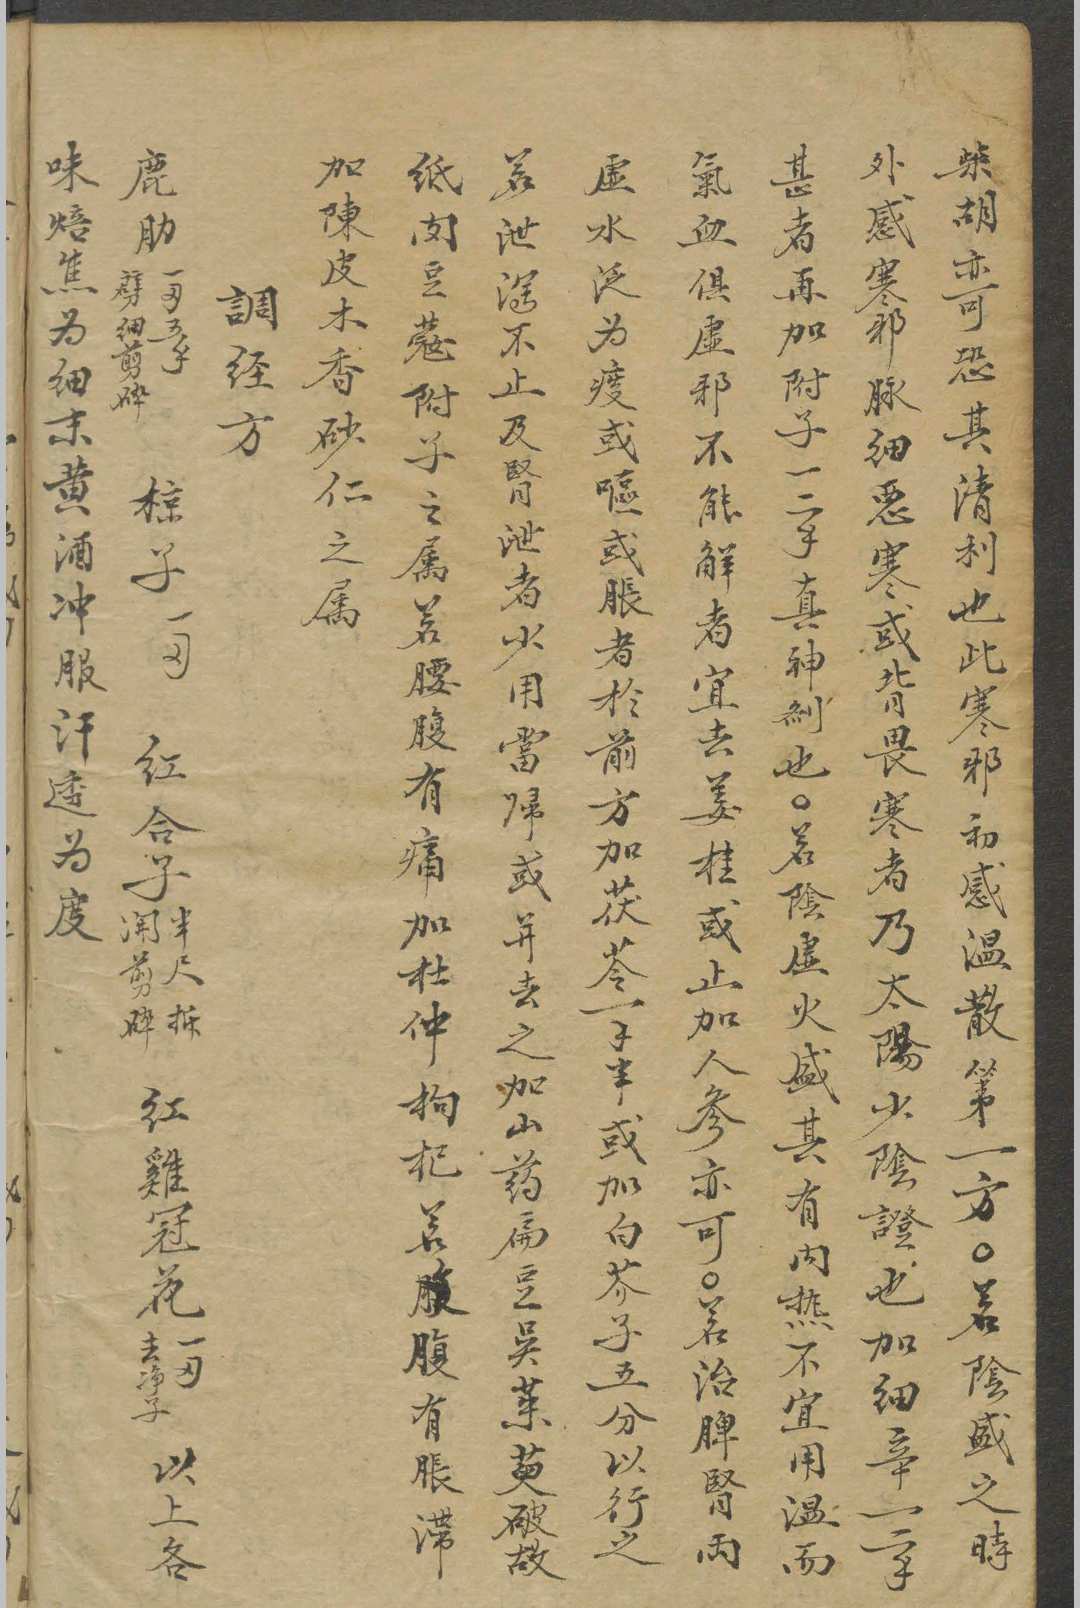 柴胡亦可恐其清利也此寒邪初感温散第一方○若陰盛之時
外感寒邪脉细恶寒或背畏寒者乃太陽少陰證也加细辛一二钱
甚者再加附子一二钱真神剂也○若陰虚火盛其有内热不宜用温而
氣血俱虚邪不能解者宜去姜桂或止加人参亦可○若治脾腎両
虚水泛为痰或嘔或脹者於前方加茯苓一钱半或加白芥子五分以行之
若泄瀉不止及腎泄者少用當归或并去之加山药扁豆吳茱萸破故
纸肉豆蔻附子之属若腰腹有痛加杜仲枸杞若腹腹有脹滞
加陳皮木香砂仁之属
調经方
鹿肋一两五钱劈细剪碎 椋子一两 红合子半尺拆開剪碎 红雞冠花一两去净子 以上各
味焙焦为细末黄酒冲服汗透为度